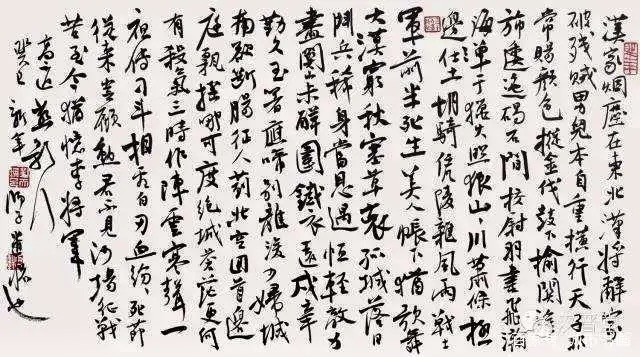 漢家烟塵在東北漢將辭家
破殘賊男兒本自重橫行天子非
常賜顏色摐金伐鼓下榆關旌
旆逶迤碣石間校尉羽書飛瀚
海單于獵火照狼山山川蕭條極
邊土胡騎憑陵雜風雨戰士
軍前半死生美人帳下猶歌舞
大漠窮秋塞草衰孤城落日
鬥兵稀身當恩遇恒輕敵力
盡關山未解圍鐵衣遠戍辛
勤久玉箸應啼別離後少婦城
南欲斷腸征人薊北空回首邊
庭飄搖哪可度絕域蒼茫更何
有殺氣三時作陣雲寒聲一
夜傳刁斗相看白刃血紛紛死節
從來豈顧勳君不見沙場征戰
苦至今猶憶李將軍
高適燕歌行
癸巳新年